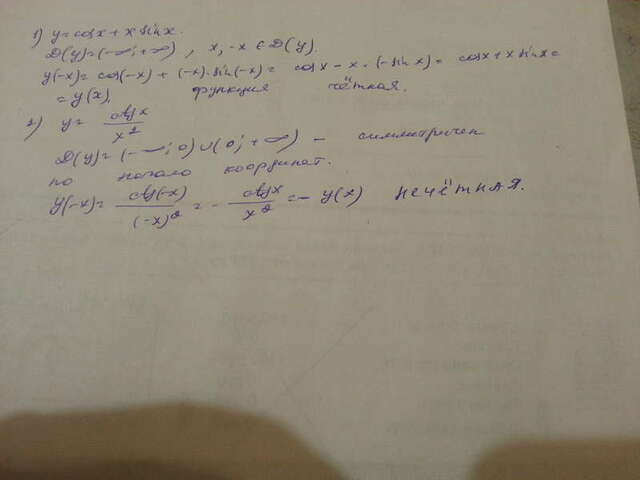 1) y = cos x + x sin x.
D(y) = (-∞; +∞) , x, -x ∈ D(y).
y(-x) = cos(-x) + (-x)·sin(-x) = cos x - x · (-sin x) = cos x + x sin x =
= y(x), функция чётная.
2) y = ctg x / x²
D(y) = (-∞; 0) ∪ (0; +∞) - симметричен
по начало координат.
y(-x) = ctg(-x) / (-x)² = - ctg x / x² = - y(x) нечётная.